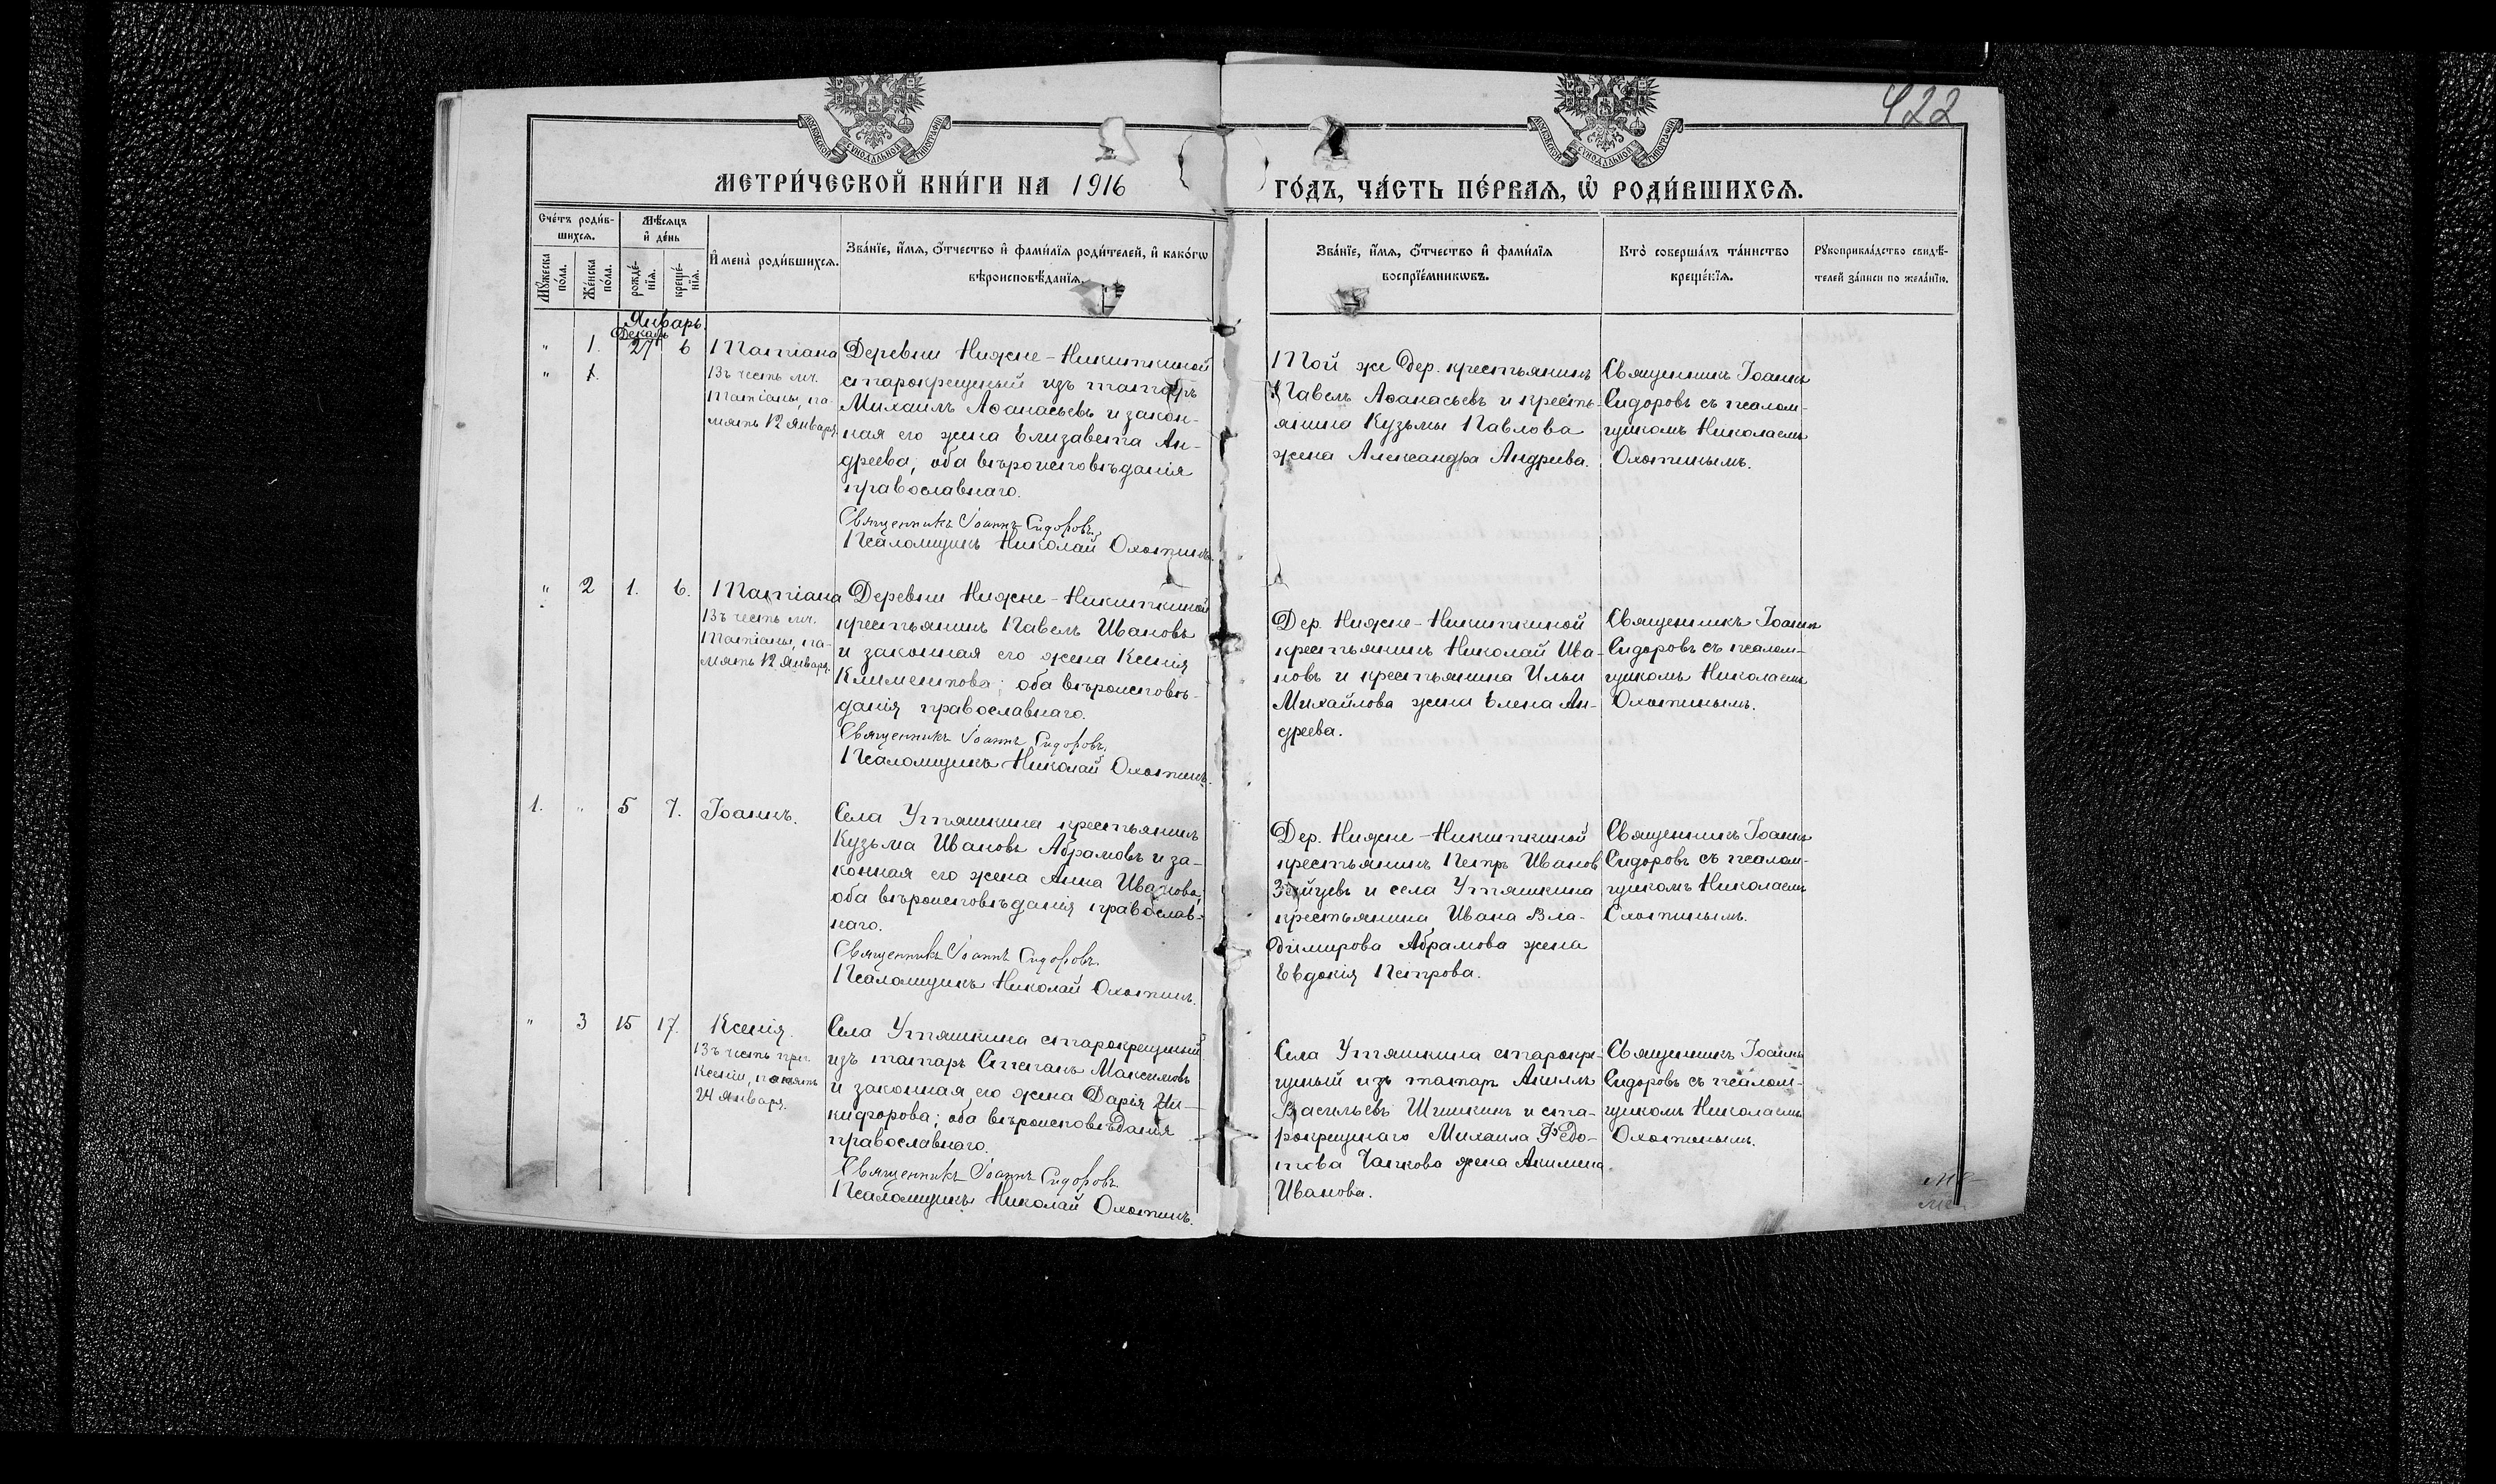 422
МОСКОВСКОЙ СУНОДАЛЬНОЙ ТИПОГРАФІИ
МОСКОВСКОЙ СУНОДАЛЬНОЙ ТИПОГРАФІИ
МЕТРИ́ЧЕСКОЙ КНИ́ГИ НА 1916
ГО́ДЪ, ЧА́СТЬ ПЕ́РВАѦ, Ѡ҆ РОДИ́ВШИХСѦ.
Сче́тъ роди́в-
шихсѧ.
Мѣ́сѧцъ
и҆ де́нь
И҆мена̀ роди́вшихсѧ.
Зва́нїе, и҆́мѧ, ѻ҆́тчество и҆ фами́лїѧ роди́телей, и҆ како́гѡ
вѣроисповѣ́данїѧ.
Мꙋ́жеска
по́ла.
Же́нска
по́ла.
рожде́-
нїѧ.
креще́-
нїѧ.
Зва́нїе, и҆́мѧ, ѻ҆́тчество и҆ фами́лїѧ
воспрїе́мникѡвъ.
Кто̀ соверша́лъ та́инство
креще́нїѧ.
Рꙋкоприкла́дство свидѣ́-
телей за́писи по жела́нїю.
Январь.
Декабь
" 1. 27 6 Татіана
" 1.
Въ честь мч.
Татіаны, па-
мять 12 Января.
Деревни Нижне-Никиткиной
старокрещеный изъ татаръ
Михаилъ Аѳанасьевъ и закон-
ная его жена Елизавета Ан-
дреева, оба вѣроисповѣданія
православнаго.
Священникъ Іоаннъ Сидоровъ.
Псаломщикъ Николай Охотинъ
Той же дер. крестьянинъ
Павелъ Аѳанасьевъ и кресть-
янина Кузьмы Павлова
жена Александра Андреева.
Священникъ Іоаннъ
Сидоровъ съ псалом-
щикомъ Николаемъ
Охотинымъ.
" 2 1. 6. Татіана
Въ честь мч.
Татіаны, па-
мять 12 Января.
Деревни Нижне-Никиткиной
крестьянинъ Павелъ Ивановъ
и законная его жена Ксенія
Климентова; оба вѣроисповѣ-
данія православнаго.
Священникъ Іоаннъ Сидоровъ.
Псаломщикъ Николай Охотинъ.
Дер. Нижне-Никиткиной
крестьянинъ Николай Ива-
новъ и крестьянина Ильи
Михайлова жена Елена Ан-
дреева.
Священникъ Іоаннъ
Сидоровъ съ псалом-
щикомъ Николаемъ
Охотинымъ.
1. " 5 7. Іоаннъ.
Села Утяшкина крестьянинъ
Кузьма Ивановъ Абрамовъ и за-
конная его жена Анна Иванова;
оба вѣроисповѣданія православ-
наго.
Священникъ Іоаннъ Сидоровъ.
Псаломщикъ Николай Охотинъ.
Дер. Нижне-Никиткиной
крестьянинъ Петръ Иванов
Зайцевъ и села Утяшкина
крестьянина Ивана Вла-
димирова Абрамова жена
Евдокія Петрова.
Священникъ Іоаннъ
Сидоровъ съ псалом-
щикомъ Николаемъ
Охотинымъ.
" 3 15 17. Ксенія.
Въ честь прп.
Ксеніи, память
24 Января.
Села Утяшкина старокрещеный
изъ татаръ Степанъ Максимовъ
и законная его жена Дарія Ни-
кифорова; оба вѣроисповѣданія
православнаго.
Священникъ Іоаннъ Сидоровъ.
Псаломщикъ Николай Охотинъ.
Села Утяшкина старокре-
щеный изъ татаръ
Васильевъ Шишкинъ и ста-
рокрещенаго Михаила Ѳедо-
това жена Акилина
Иванова.
Священникъ Іоаннъ
Сидоровъ съ псалом-
щикомъ Николаемъ
Охотинымъ.